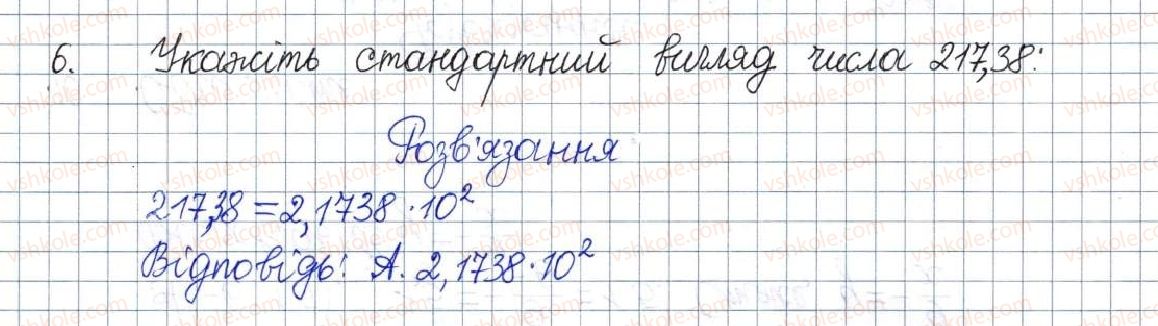 6. Укажіть стандартний вигляд числа 217,38:
Розв'язання
217,38 = 2,1738 · 10²
Відповідь: А. 2,1738 · 10²